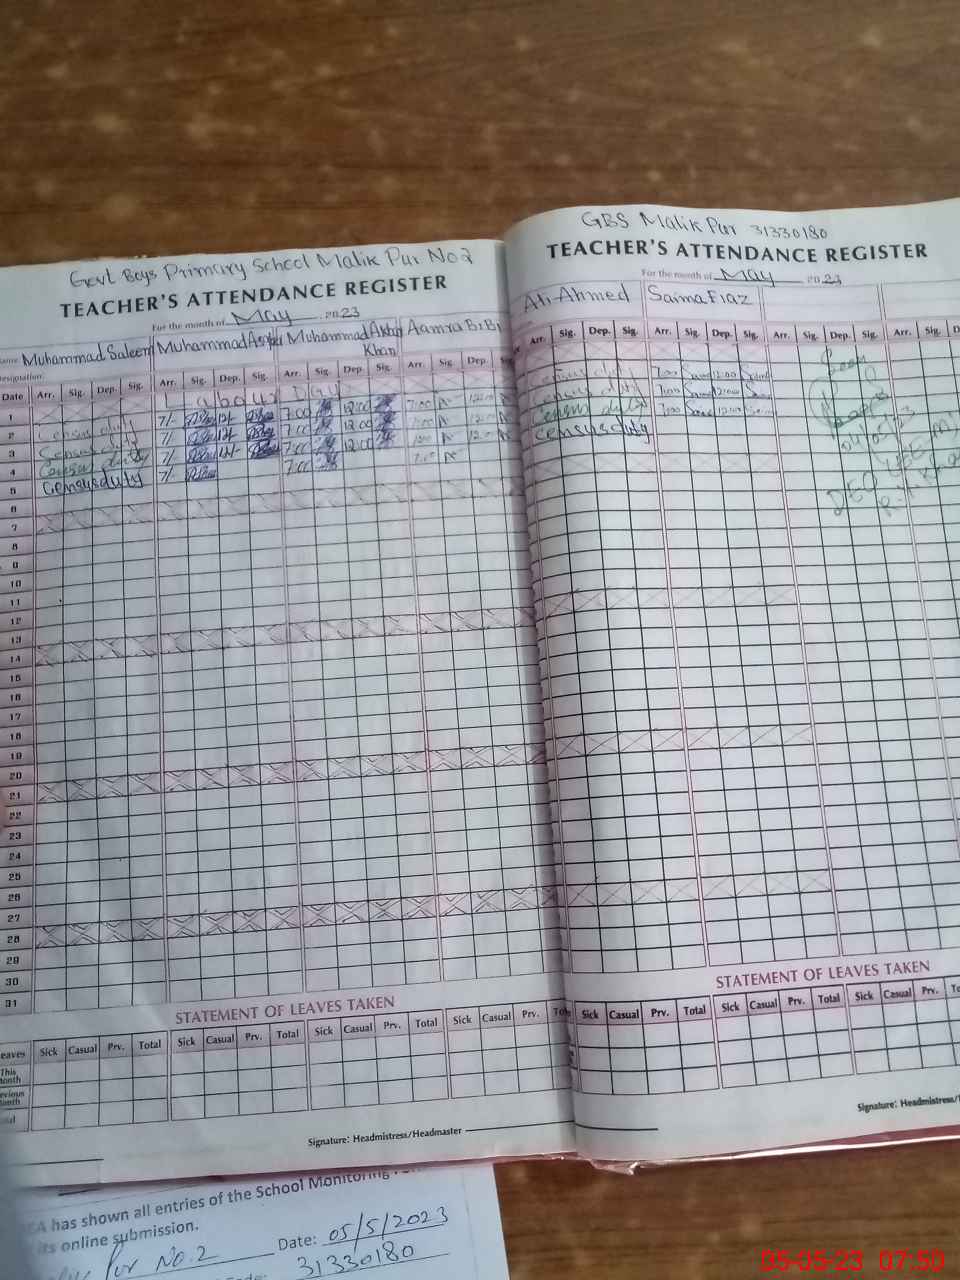 Govt Boys Primary School Malik Pur No 2
TEACHER'S ATTENDANCE REGISTER
For the month of May 2023
Muhammad Saleem Muhammad Asghar Muhammad Akbar Khan Aamra BiBi
Designation:
Date Arr. Sig. Dep. Sig. Arr. Sig. Dep. Sig. Arr. Sig. Dep. Sig. Arr. Sig. Dep. Sig.
1 Labour Day
2 Census duty 7/- 12/- 7:00 12:00 7:00 12:00
3 Census duty 7/- 12/- 7:00 12:00 7:00 12:00
4 Census duty 7/- 12/- 7:00 12:00 7:00 12:00
5 Census duty 7/- 7:00 7:00
6
7
8
9
10
11
12
13
14
15
16
17
18
19
20
21
22
23
24
25
26
27
28
29
30
31
STATEMENT OF LEAVES TAKEN
eaves Sick Casual Prv. Total Sick Casual Prv. Total Sick Casual Prv. Total Sick Casual Prv.
This Month
evious Month
Signature: Headmistress/Headmaster
GBS Malik Pur 31330180
TEACHER'S ATTENDANCE REGISTER
For the month of May 2023
Ali Ahmed Saima Fiaz
Arr. Sig. Dep. Sig. Arr. Sig. Dep. Sig. Arr. Sig. Dep. Sig. Arr. Sig.
Census duty 7:00 12:00
Census duty 7:00 12:00
Census duty 7:00 12:00
Census duty
Seen
04/05/23
DEO
STATEMENT OF LEAVES TAKEN
Sick Casual Prv. Total Sick Casual Prv. Total Sick Casual Prv.
Signature: Headmistress/
EA has shown all entries of the School Monitoring
its online submission.
Pur No.2 Date: 05/5/2023
31330180
05-05-23 07:50